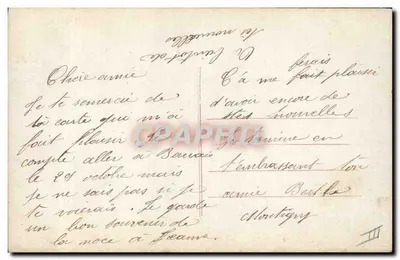 Chère amie
Je te remercie de
ta carte que m'a
fait plaisir je
compte aller à Beauvais
le 28 octobre mais
je ne sais pas si je
te verais. Je garde
un bon souvenir de
la noce à Jeanne.
Ça me ferais
fait plaisir
d'avoir encore de
tes nouvelles
Je termine en
t'embrassant ton
amie Berthe
Montigny
A bientôt de
tes nouvelles
CPAPHIL
III